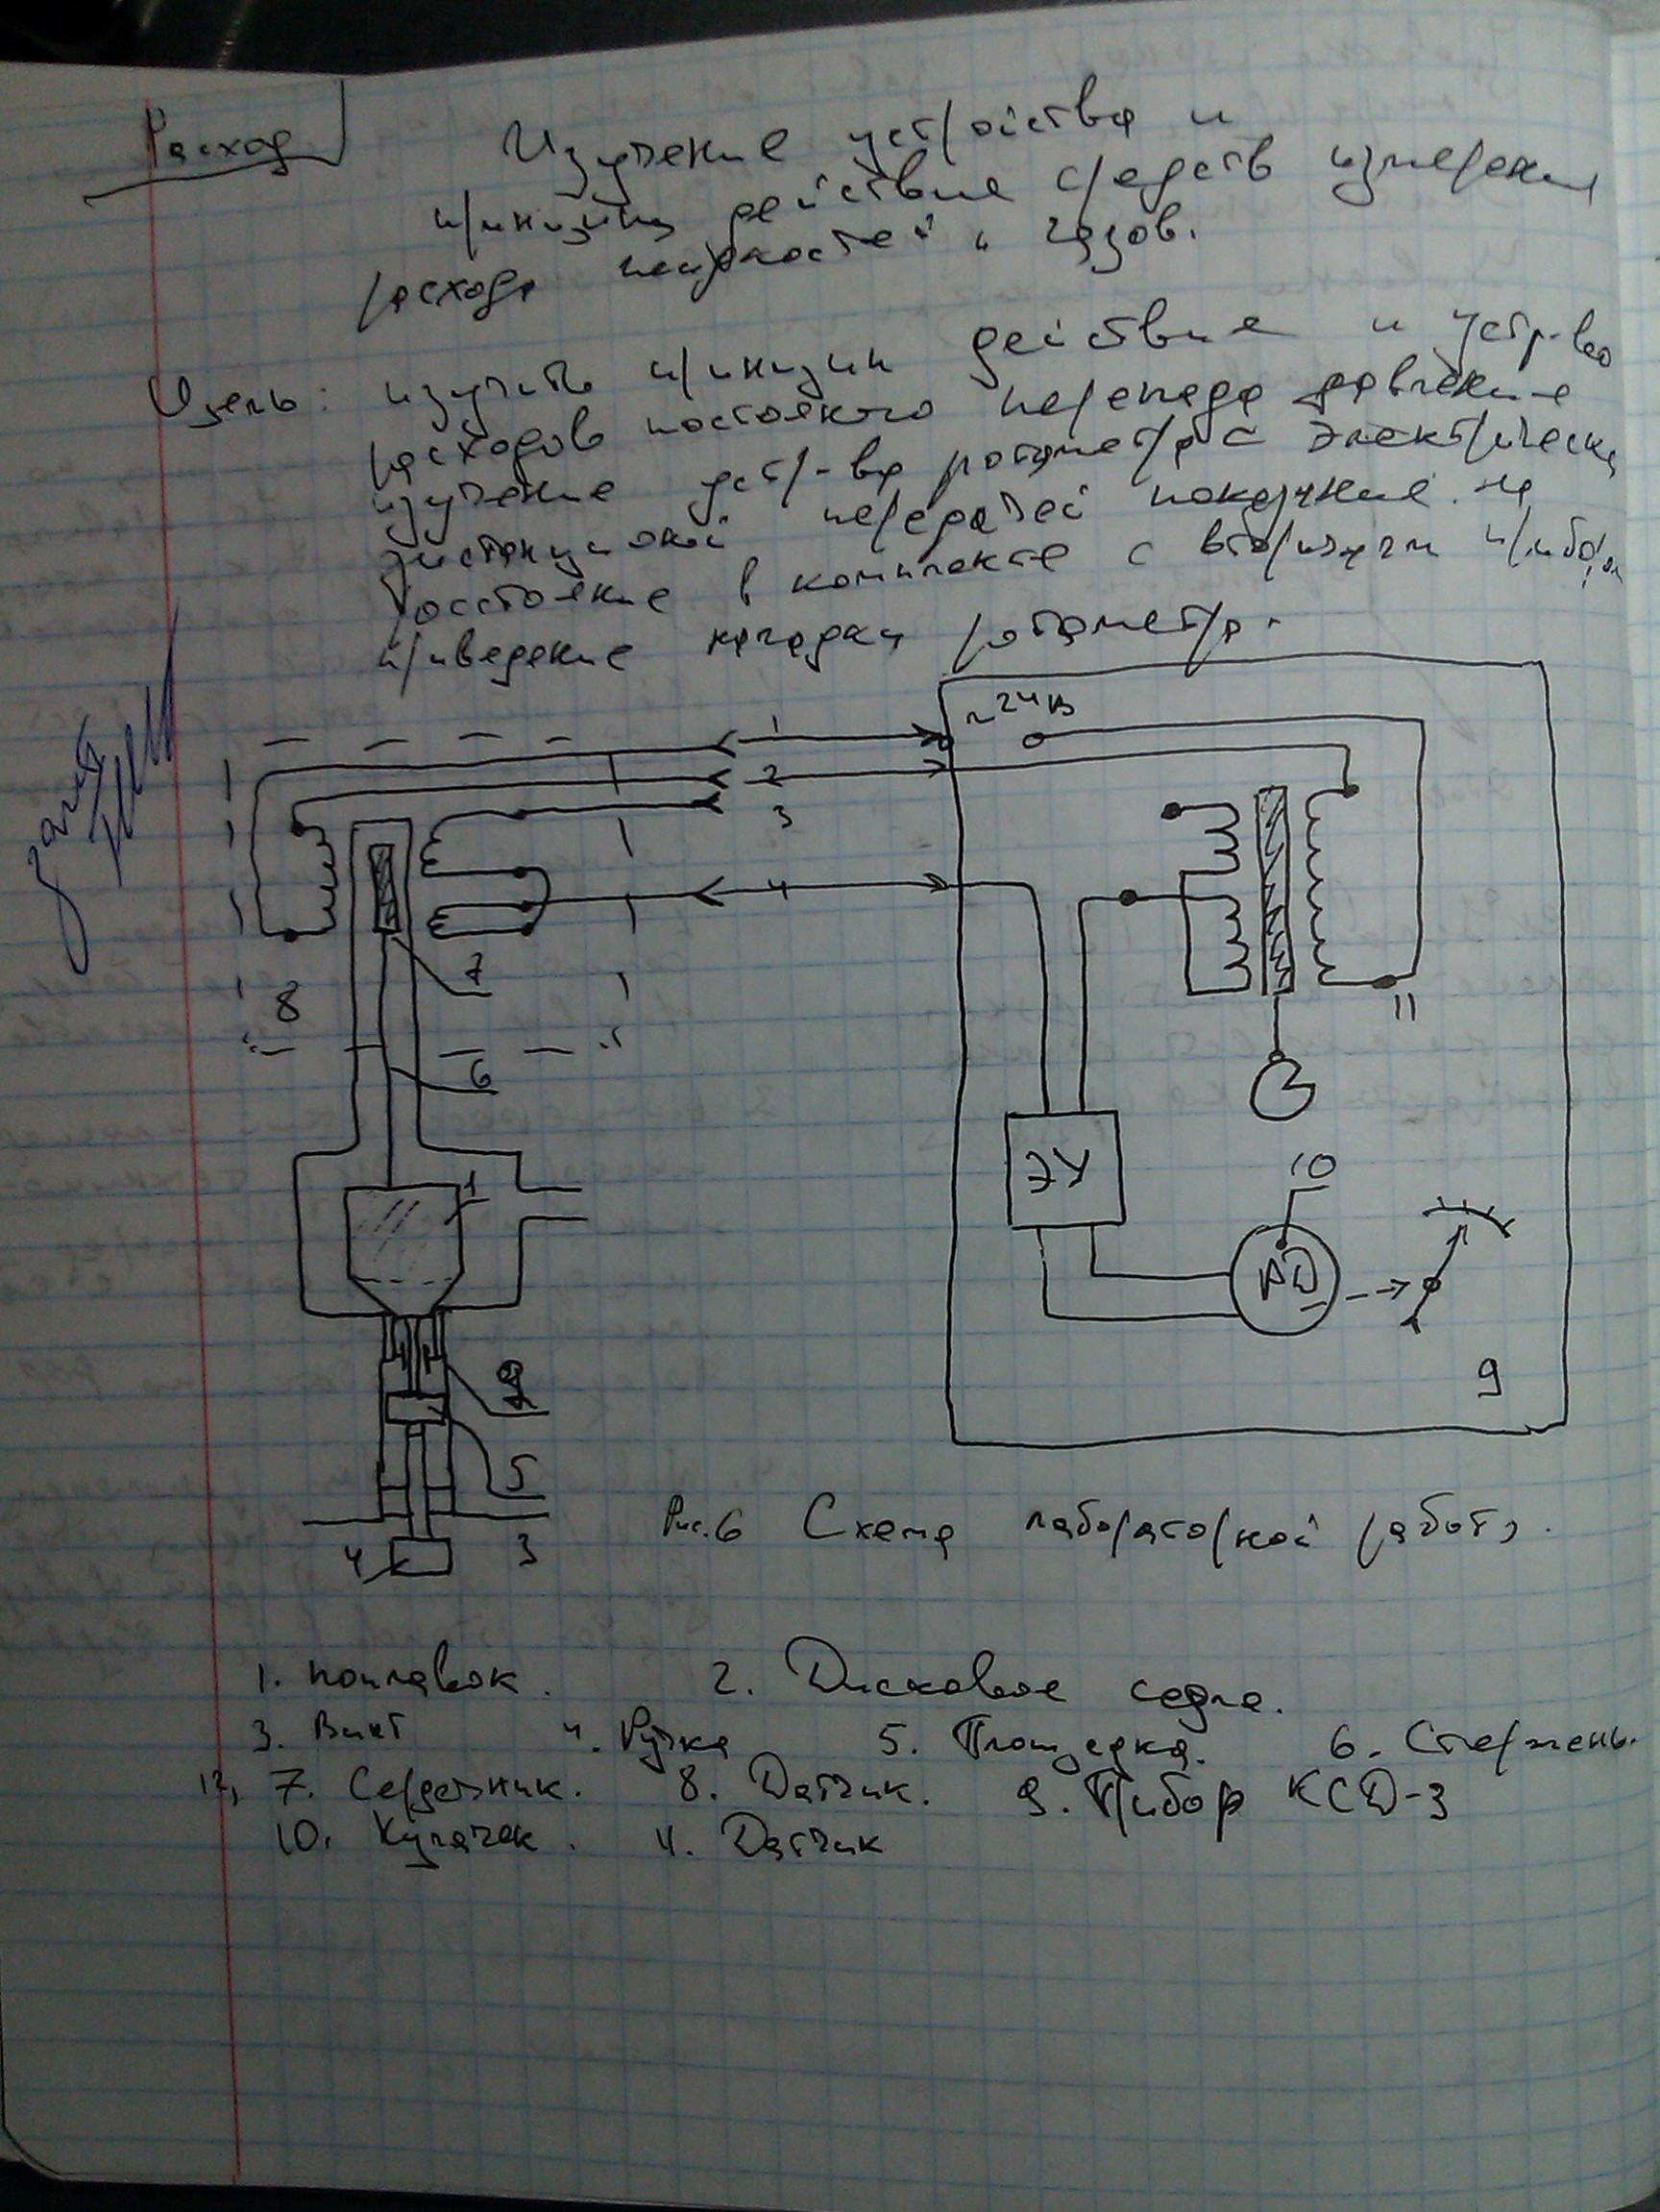 Расход
Изучение устройства и
принципа действие средств измерения
расхода жидкостей и газов.
Цель: изучить принцип действие и устр-во
расходов постояного перепада давление
изучение устр-ва ротаметра с электрическ
дистанционой передачей показание на
росстояние в комплекте с вторичным прибором
приведение наладки ротаметра.
зачет
~24В
1
2
3
4
7
8
11
6
ЭУ
1
10
РД
9
2
5
Рис.6 Схема лабораторной работы.
4
3
1. поплавок. 2. Дисковое седло.
3. Винт 4. Ручка 5. Площедка. 6. Стержень.
12, 7. Сердечник. 8. Датчик. 9. Прибор КСД-3
10. Кулачек. 11. Датчик